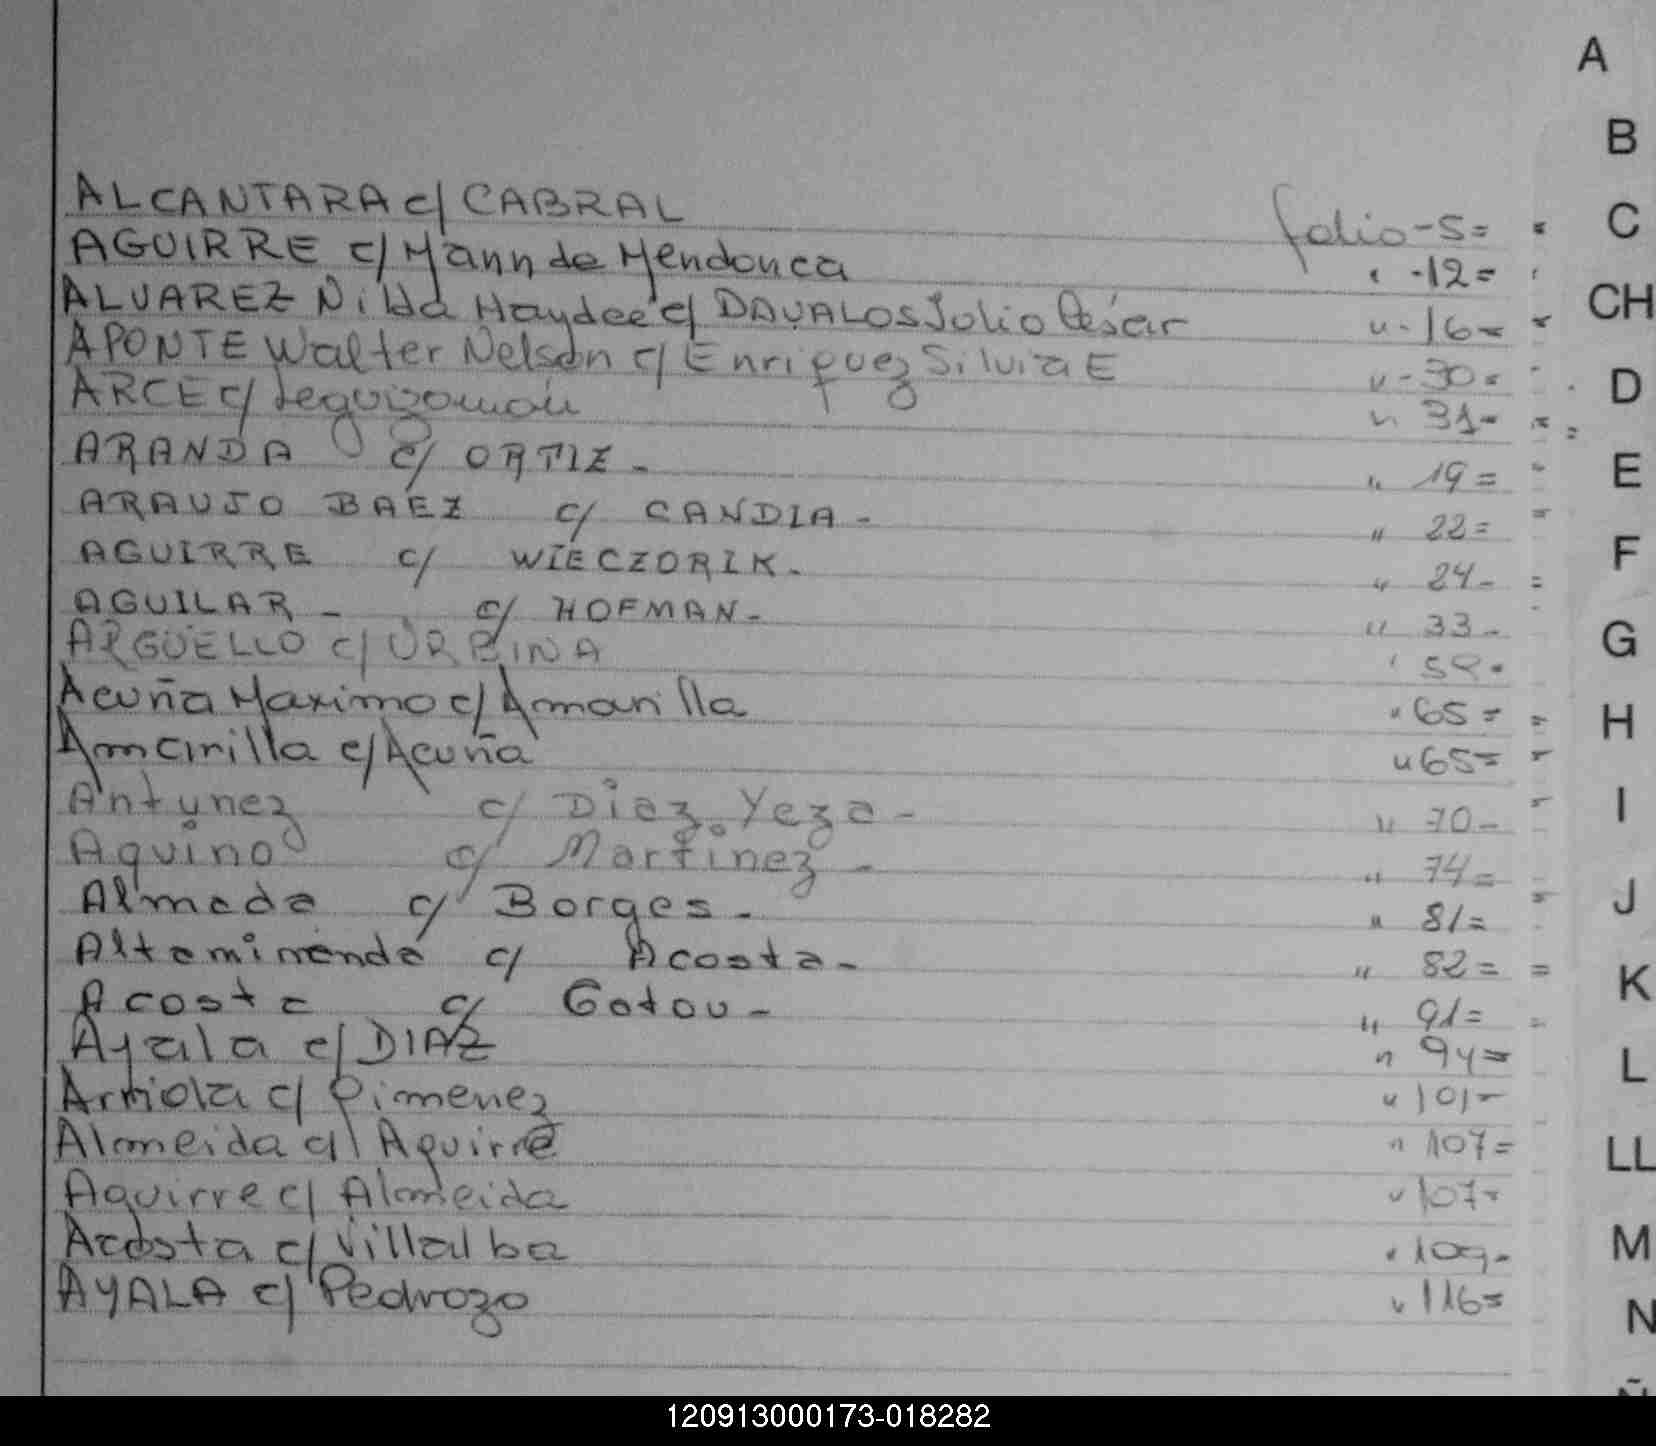 A
B
ALCANTARA c/ CABRAL folio - 5 =
C
AGUIRRE c/ Mann de Mendonca " - 12 =
ALVAREZ Nilda Haydee c/ DAVALOS Julio César " - 16 =
CH
APONTE Walter Nelson c/ Enriquez Silvia E " - 30 =
D
ARCE c/ Leguizamón " 31 =
ARANDA c/ ORTIZ - " 19 =
E
ARAUJO BAEZ c/ CANDIA - " 22 =
AGUIRRE c/ WIECZORIK - " 24 -
F
AGUILAR - c/ HOFMAN - " 33 -
G
ARGÜELLO c/ URBINA
Acuña Maximo c/ Amarilla " 65 =
H
Amarilla c/ Acuña " 65 =
Antunez c/ Diaz Yeza - " 70 -
I
Aquino c/ Martinez - " 74 =
Almada c/ Borges - " 81 =
J
Altamiranda c/ Acosta - " 82 = =
K
Acosta c/ Gotou - " 91 =
Ayala c/ DIAZ " 94 =
L
Arriola c/ Gimenez " 101 -
Almeida c/ Aguirre " 107 =
LL
Aguirre c/ Almeida " 107 -
Acosta c/ Villalba " 109 -
M
AYALA c/ Pedrozo " 116 =
N
120913000173-018282